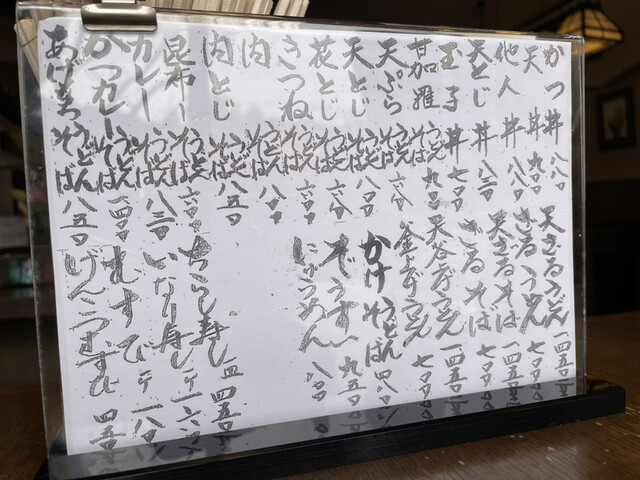 かつ丼 八八〇
天丼 九〇〇
他人丼 八八〇
天とじ丼
玉子丼 七〇〇
甘加羅うどん 九〇〇
天ぷらうどんそば
天とじうどんそば
花とじうどんそば
きつねうどんそば 六〇〇
肉うどんそば
肉とじうどんそば 八五〇
昆布うどんそば 六〇〇
カレーうどんそば
かつカレーうどんそば 一四〇〇
うどんそば 八五〇
天ざるうどん 一四五〇
ざるうどん 七〇〇
天ざるそば 一四五〇
ざるそば 七〇〇
うどん 一四五〇
うどん 七〇〇
かけうどんそば 四八〇
ぞうすい 九五〇
にゅうめん 八〇〇
ちらし寿し 一皿 四五〇
いなり寿し 一ケ
むすび 一ケ 一八〇
げんこつむすび 四五〇